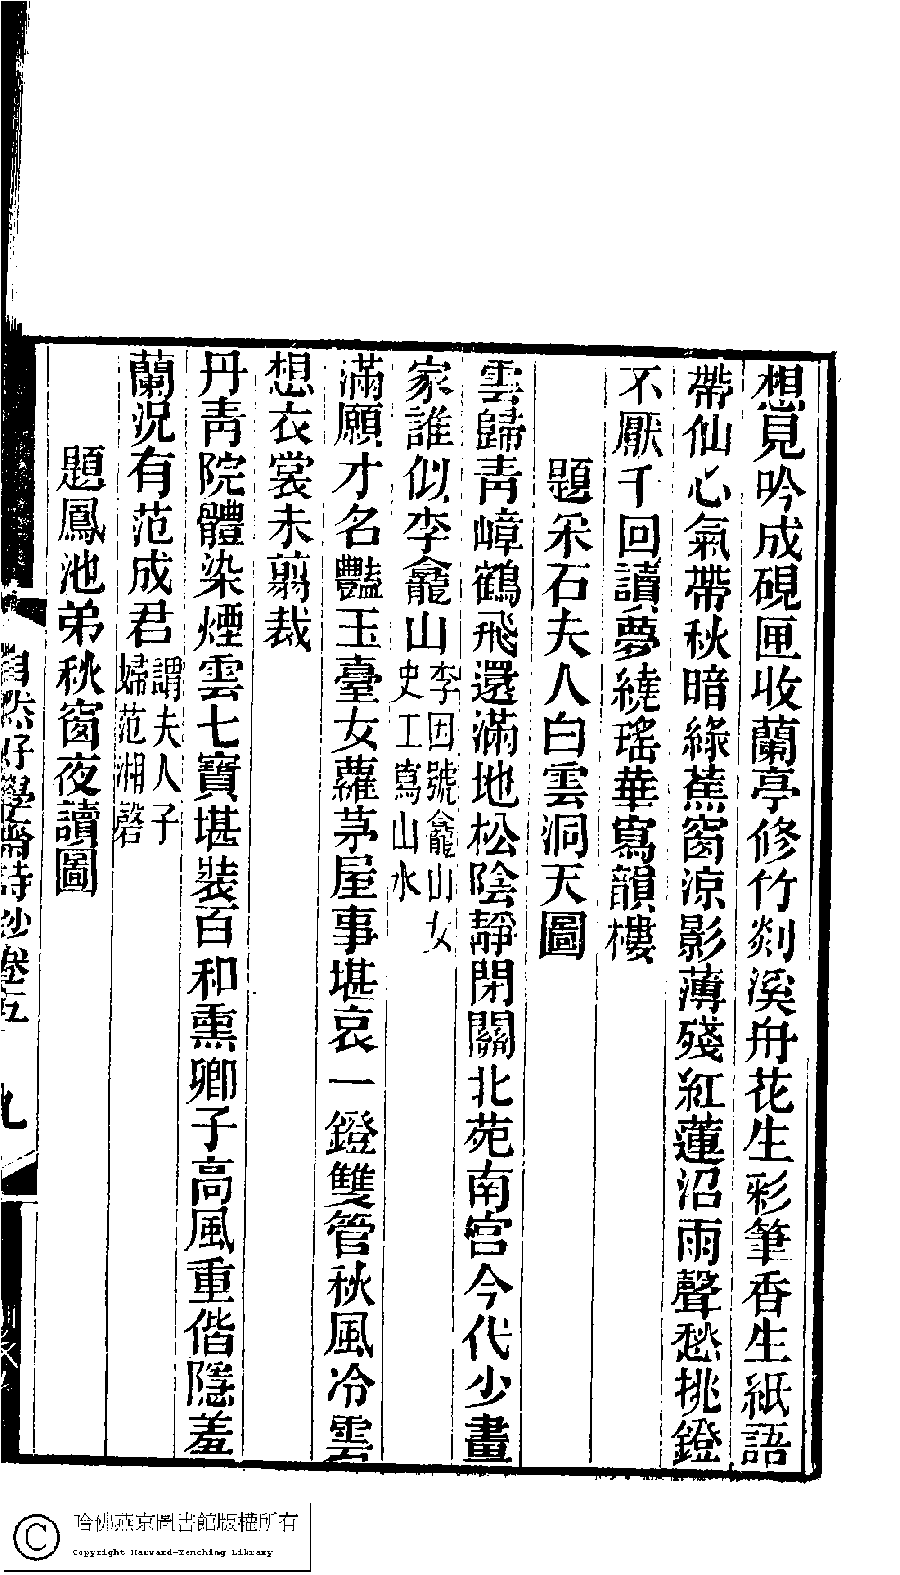 想見吟成硯匣收蘭亭修竹剡溪舟花生彩筆香生紙語
帶仙心氣帶秋暗綠蕉窗涼影薄殘紅蓮沼雨聲愁挑鐙
不厭千回讀夢繞瑤華寫韻樓
題采石夫人白雲洞天圖
雲歸青嶂鶴飛還滿地松陰靜閉關北苑南宮今代少畫
家誰似李龕山李因號龕山女史工寫山水
滿願才名豔玉臺女蘿茅屋事堪哀一鐙雙管秋風冷雲
想衣裳未翦裁
丹青院體染煙雲七寶堪裝百和熏卿子高風重偕隱羞
蘭況有范成君謂夫人子婦范湘磬
題鳳池弟秋窗夜讀圖
自然好學齋詩鈔卷五 九
哈佛燕京圖書館版權所有
Copyright Harvard-Yenching Library